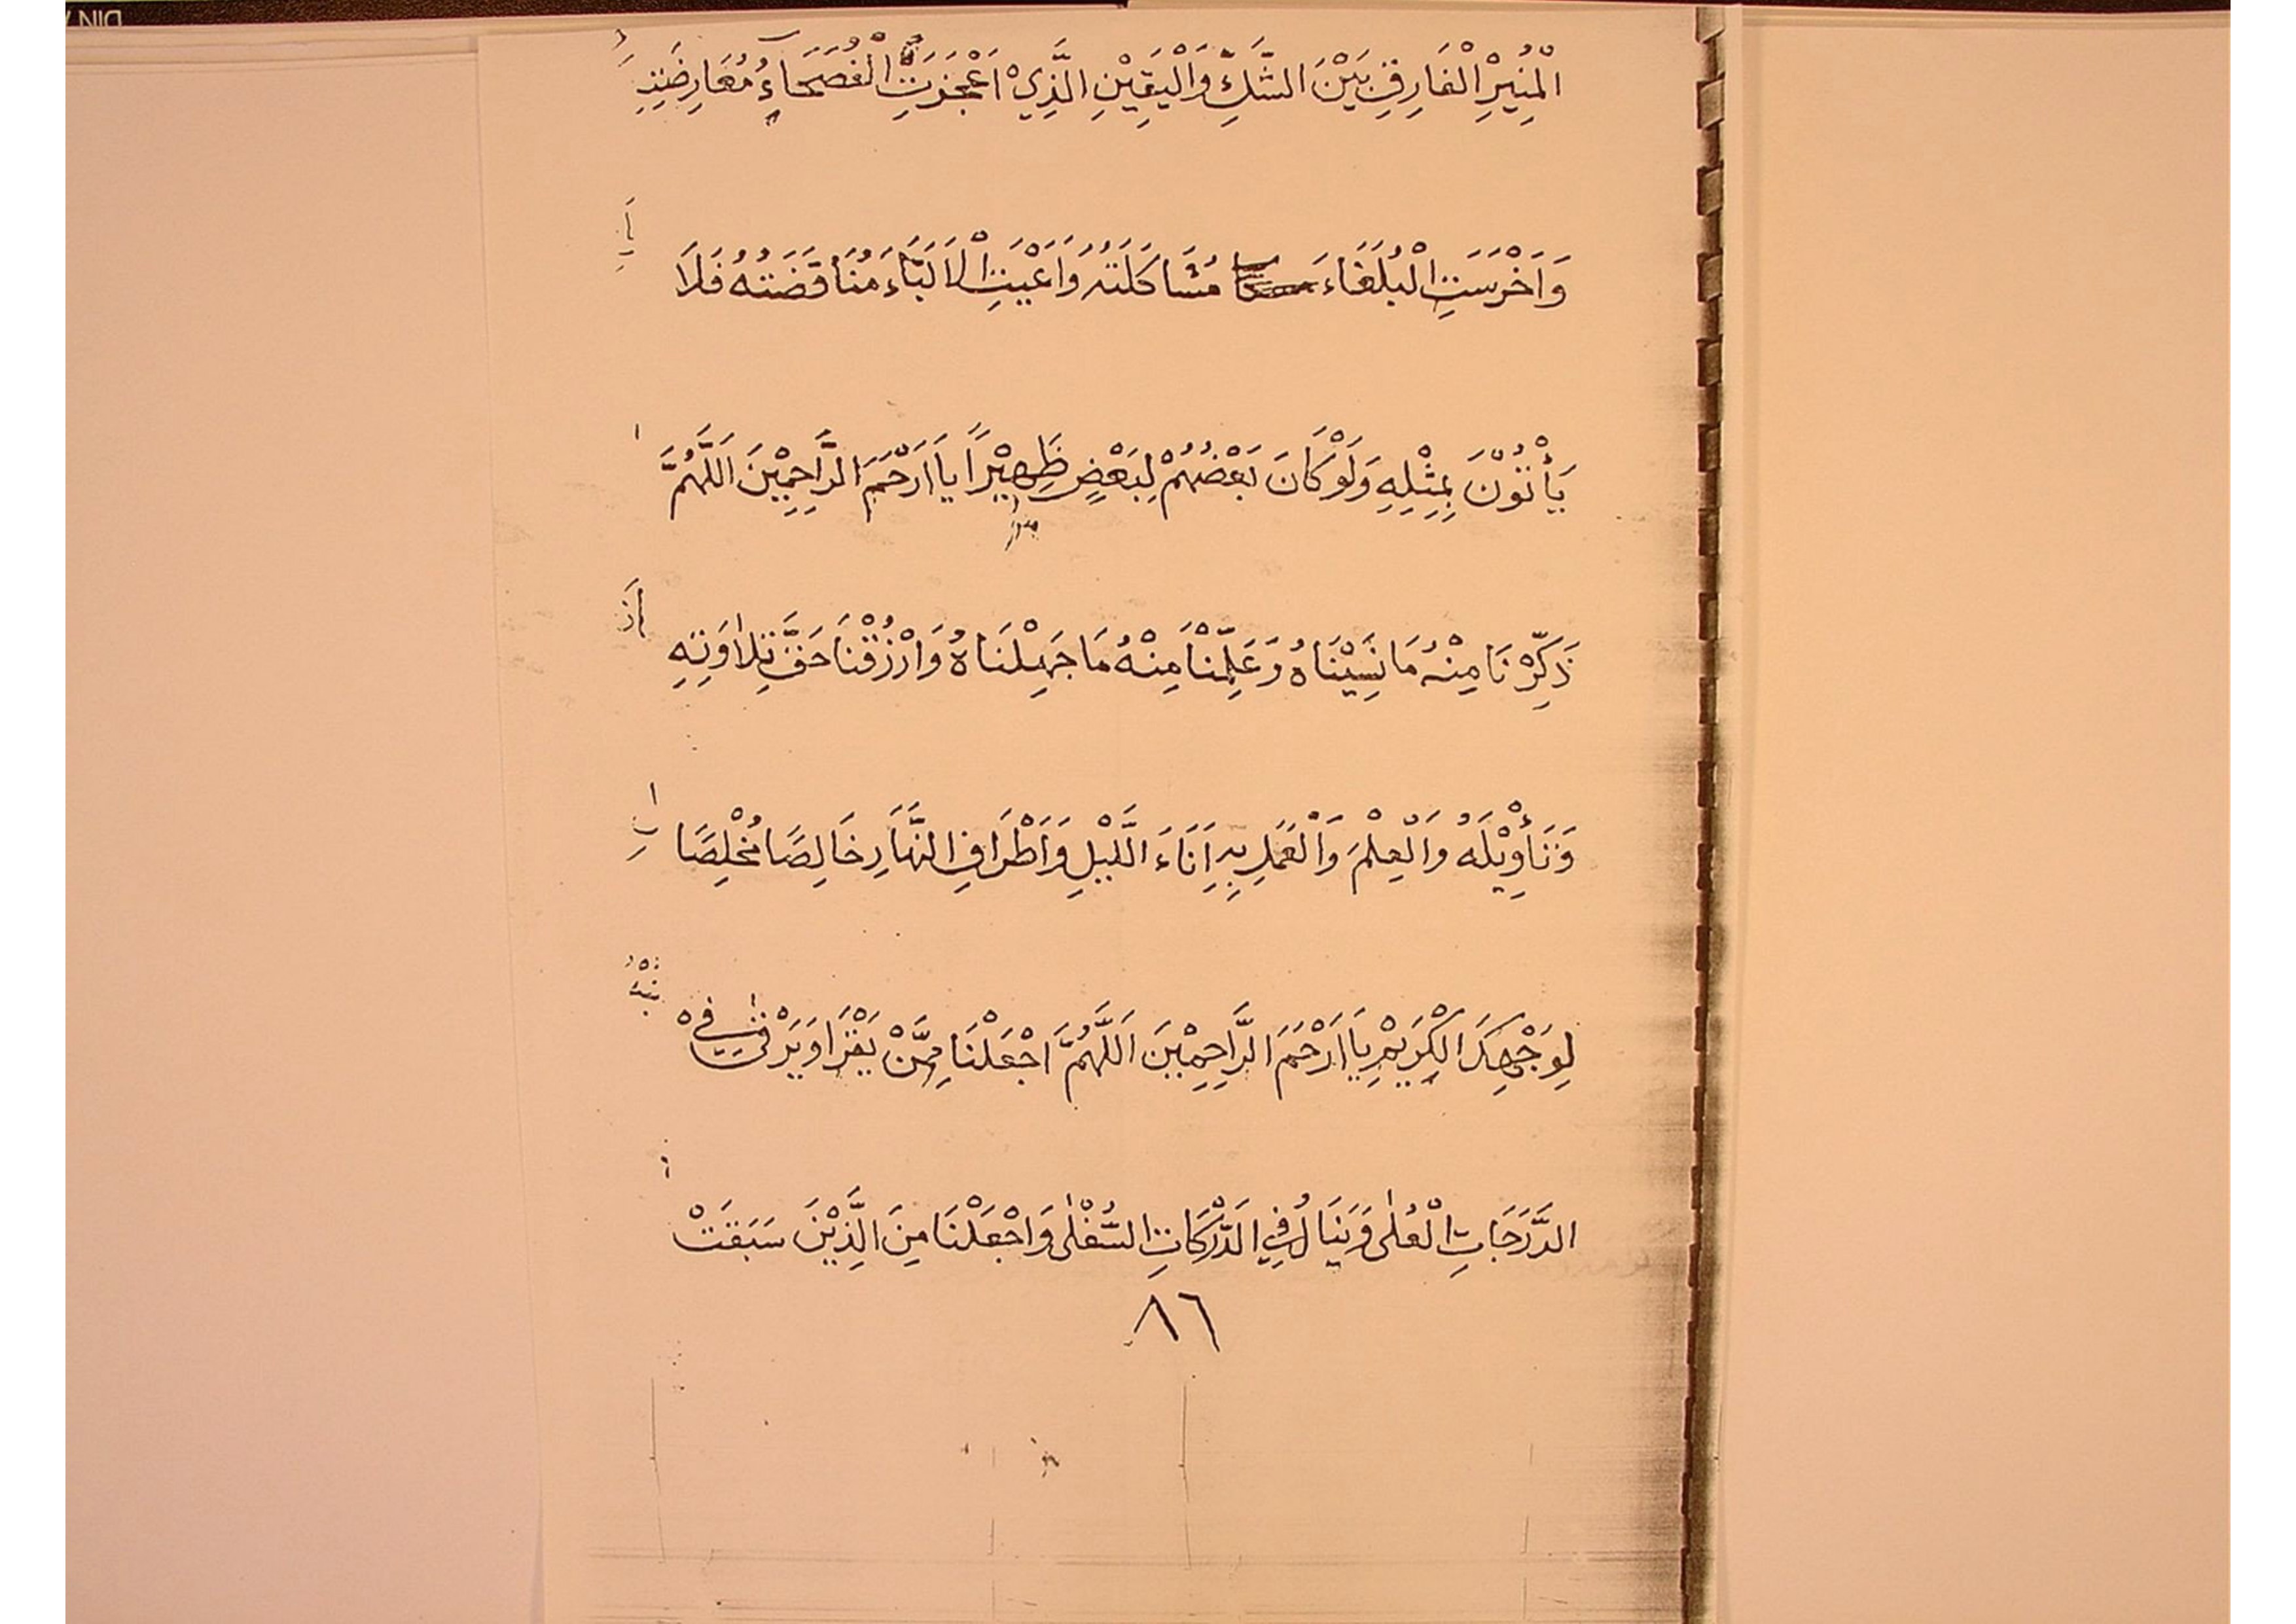 الْمُنِيْرِ الْفَارِقِ بَيْنَ الشَّكِّ وَالْيَقِيْنِ الَّذِيْ اَعْجَزَتِ الْفُصَحَاءُ مُعَارِضَتِهِ
وَاَخْرَسَتِ الْبُلَغَاءَ مُشَاكَلَتُهُ وَاَعْيَتِ الْاَلِبَّاءَ مُنَاقَضَتُهُ فَلَا
يَأْتُوْنَ بِمِثْلِهِ وَلَوْ كَانَ بَعْضُهُمْ لِبَعْضٍ ظَهِيْرًا يَا اَرْحَمَ الرَّاحِمِيْنَ اَللّٰهُمَّ
ذَكِّرْنَا مِنْهُ مَا نَسِيْنَاهُ وَعَلِّمْنَا مِنْهُ مَا جَهِلْنَاهُ وَارْزُقْنَا حَقَّ تِلَاوَتِهِ
وَتَأْوِيْلَهُ وَالْعِلْمَ وَالْعَمَلِ بِهِ اِنَاءَ الَّيْلِ وَاَطْرَافِ النَّهَارِ خَالِصًا مُخْلِصًا
لِوَجْهِكَ الْكَرِيْمِ يَا اَرْحَمَ الرَّاحِمِيْنَ اَللّٰهُمَّ اجْعَلْنَا مِمَّنْ يَقْرَا وَيَرْقٰى فِيْ
الدَّرَجَاتِ الْعُلٰى وَيَنَالُ فِي الدَّرَكَاتِ السُّفْلٰى وَاجْعَلْنَا مِنَ الَّذِيْنَ سَبَقَتْ
٨٦